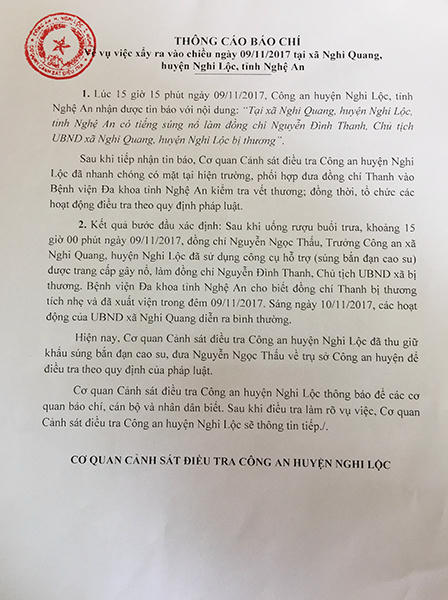 THÔNG CÁO BÁO CHÍ
Về vụ việc xẩy ra vào chiều ngày 09/11/2017 tại xã Nghi Quang,
huyện Nghi Lộc, tỉnh Nghệ An
1. Lúc 15 giờ 15 phút ngày 09/11/2017, Công an huyện Nghi Lộc, tỉnh
Nghệ An nhận được tin báo với nội dung: “Tại xã Nghi Quang, huyện Nghi Lộc,
tỉnh Nghệ An có tiếng súng nổ làm đồng chí Nguyễn Đình Thanh, Chủ tịch
UBND xã Nghi Quang, huyện Nghi Lộc bị thương”.
Sau khi tiếp nhận tin báo, Cơ quan Cảnh sát điều tra Công an huyện Nghi
Lộc đã nhanh chóng có mặt tại hiện trường, phối hợp đưa đồng chí Thanh vào
Bệnh viện Đa khoa tỉnh Nghệ An kiểm tra vết thương; đồng thời, tổ chức các
hoạt động điều tra theo quy định pháp luật.
2. Kết quả bước đầu xác định: Sau khi uống rượu buổi trưa, khoảng 15
giờ 00 phút ngày 09/11/2017, đồng chí Nguyễn Ngọc Thấu, Trưởng Công an xã
Nghi Quang, huyện Nghi Lộc đã sử dụng công cụ hỗ trợ (súng bắn đạn cao su)
được trang cấp gây nổ, làm đồng chí Nguyễn Đình Thanh, Chủ tịch UBND xã bị
thương. Bệnh viện Đa khoa tỉnh Nghệ An cho biết đồng chí Thanh bị thương
tích nhẹ và đã xuất viện trong đêm 09/11/2017. Sáng ngày 10/11/2017, các hoạt
động của UBND xã Nghi Quang diễn ra bình thường.
Hiện nay, Cơ quan Cảnh sát điều tra Công an huyện Nghi Lộc đã thu giữ
khẩu súng bắn đạn cao su, đưa Nguyễn Ngọc Thấu về trụ sở Công an huyện để
điều tra theo quy định của pháp luật.
Cơ quan Cảnh sát điều tra Công an huyện Nghi Lộc thông báo để các cơ
quan báo chí, cán bộ và nhân dân biết. Sau khi điều tra làm rõ vụ việc, Cơ quan
Cảnh sát điều tra Công an huyện Nghi Lộc sẽ thông tin tiếp./.
CƠ QUAN CẢNH SÁT ĐIỀU TRA CÔNG AN HUYỆN NGHI LỘC